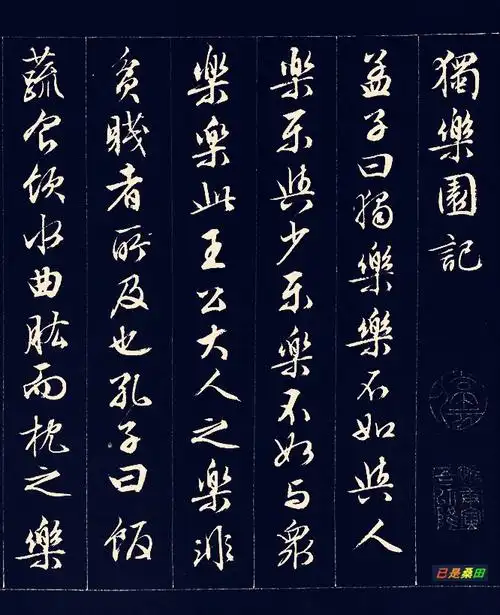 獨樂園記
孟子曰獨樂樂不如與人
樂樂與少樂樂不如與衆
樂樂此王公大人之樂非
貧賤者所及也孔子曰飯
蔬食飲水曲肱而枕之樂
已是桑田